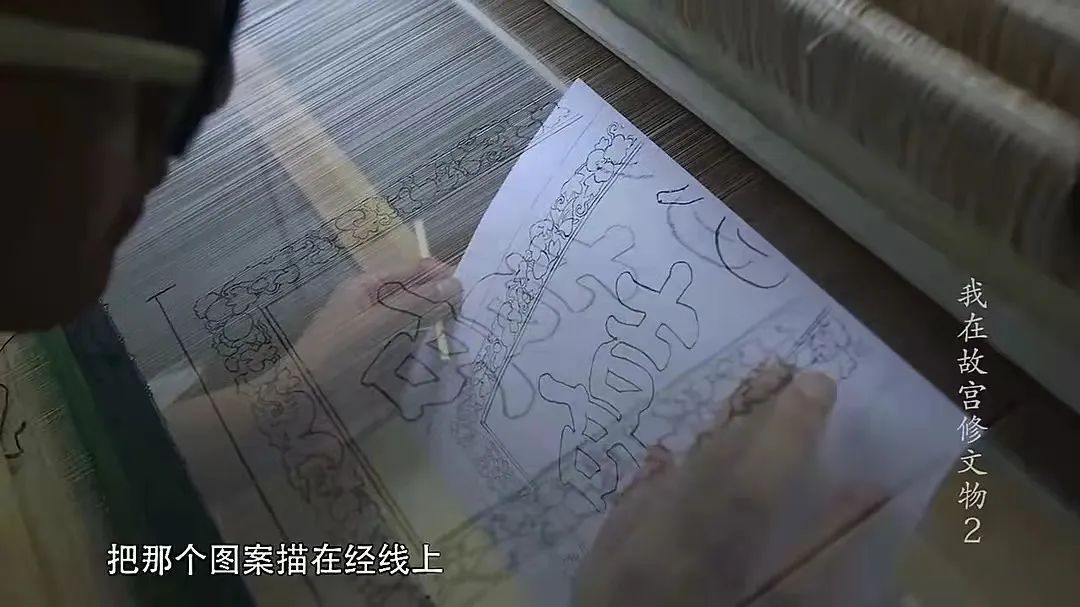 我在故宫修文物2
把那个图案描在经线上